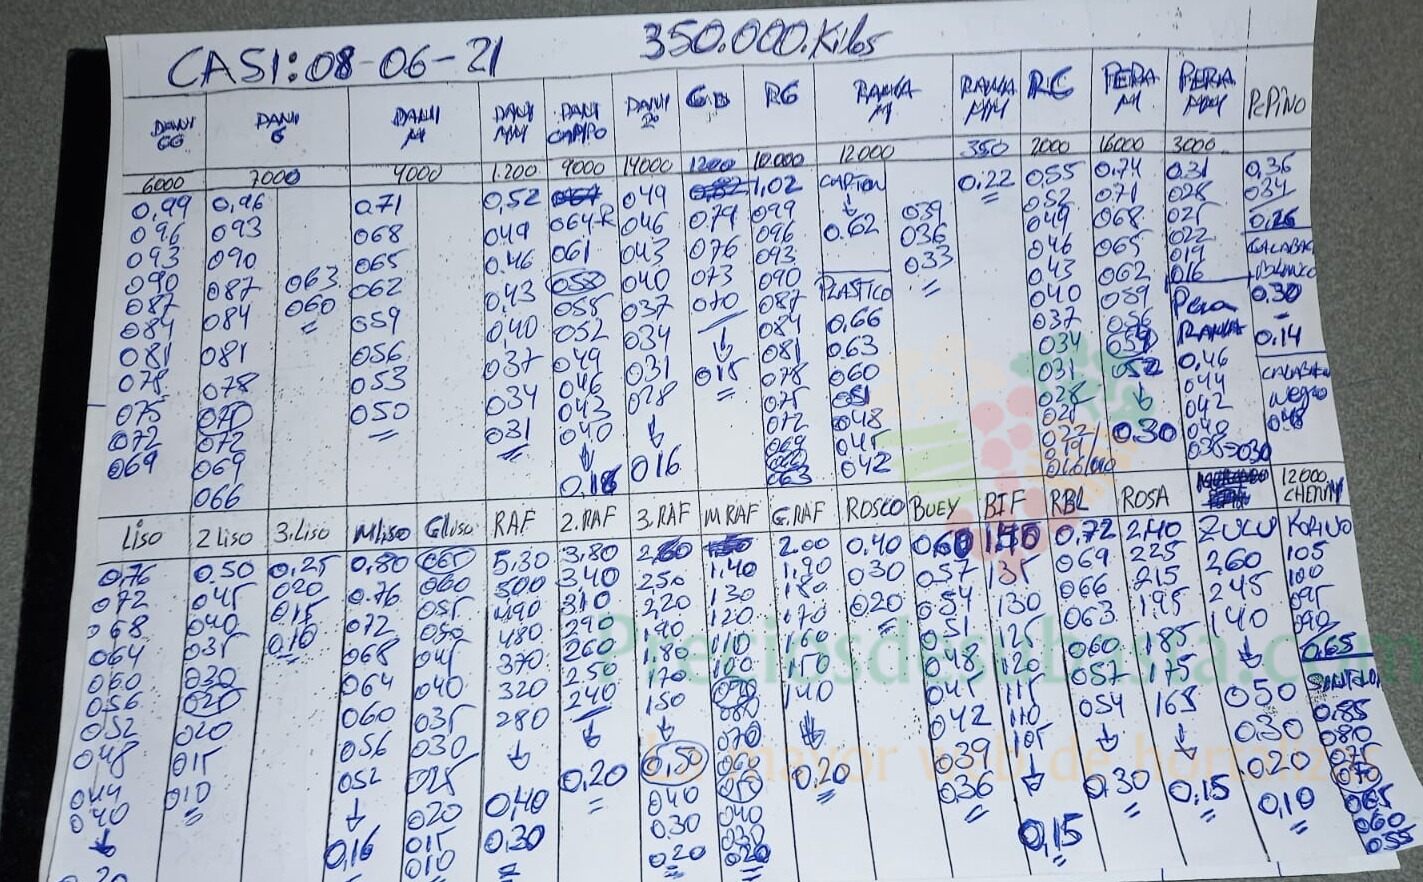 CASI: 08-06-21 350.000.Kilos
DANI GG DANI G DANI M DANI MM DANI CAMPO DANI 2º G.D RG RAMA M RAMA MM RC PERA M PERA MM PEPINO
6000 7000 4000 1.200 9000 14000 1200 10.000 12000 350 2000 16000 3000
0,99 0,96 0.71 0,52 049 1,02 CARTON 0.22 0,55 0.74 0.31 0,36
096 093 068 049 064-R 046 079 099 ↓ 039 052 071 028 034
093 090 065 0.46 061 043 076 096 0.62 036 049 068 025 0,26
090 087 063 062 0.43 058 040 073 093 033 046 065 022 CALABAZ
087 084 060 059 0,40 055 037 070 090 PLASTICO 043 062 019 BLANCO
084 081 056 037 052 034 ↓ 087 0.66 040 059 016 0.30
081 078 053 034 049 031 015 084 063 037 056 Pera 0.14
078 075 050 031 046 028 081 060 034 054 RAMA CALABAZ
075 072 043 ↓ 078 051 031 052 0,46 negro
072 069 040 016 075 048 028 ↓ 044 048
069 066 ↓ 072 045 025 0.30 042
0,18 069 042 022
063
LISO 2 LISO 3.LISO M LISO G LISO RAF 2.RAF 3.RAF M RAF G.RAF ROSCO BUEY BIF RBL ROSA 12000 CHERRY
0,76 0.50 0,25 0,80 065 5,30 3.80 2,60 2.00 0.40 060 0,72 2,40 ZULU KORINO
072 045 020 0.76 060 500 340 250 1.40 1,90 030 057 135 069 225 260 105
068 040 015 072 055 490 310 220 130 180 020 054 130 066 215 245 100
064 035 0,10 068 050 480 290 190 120 170 051 125 063 195 140 095
060 030 064 045 370 260 180 110 160 048 120 060 185 ↓ 090
056 025 060 040 320 250 170 100 150 045 115 057 175 050 0,65
052 020 056 035 280 240 150 090 140 042 110 054 165 0,30
048 015 052 030 ↓ ↓ ↓ 080 ↓ 039 105 ↓ ↓ 020 0,85
044 010 ↓ 025 0,40 0,20 0,50 070 0,20 036 ↓ 0,30 0.15 0,10 080
040 0,16 020 0,30 040 060 0,15 075
↓ 015 0.30 050 070
0.20 010 020 040 065
030 060
020 055
Preciosdesubasta.com
La mayor web de hortaliz